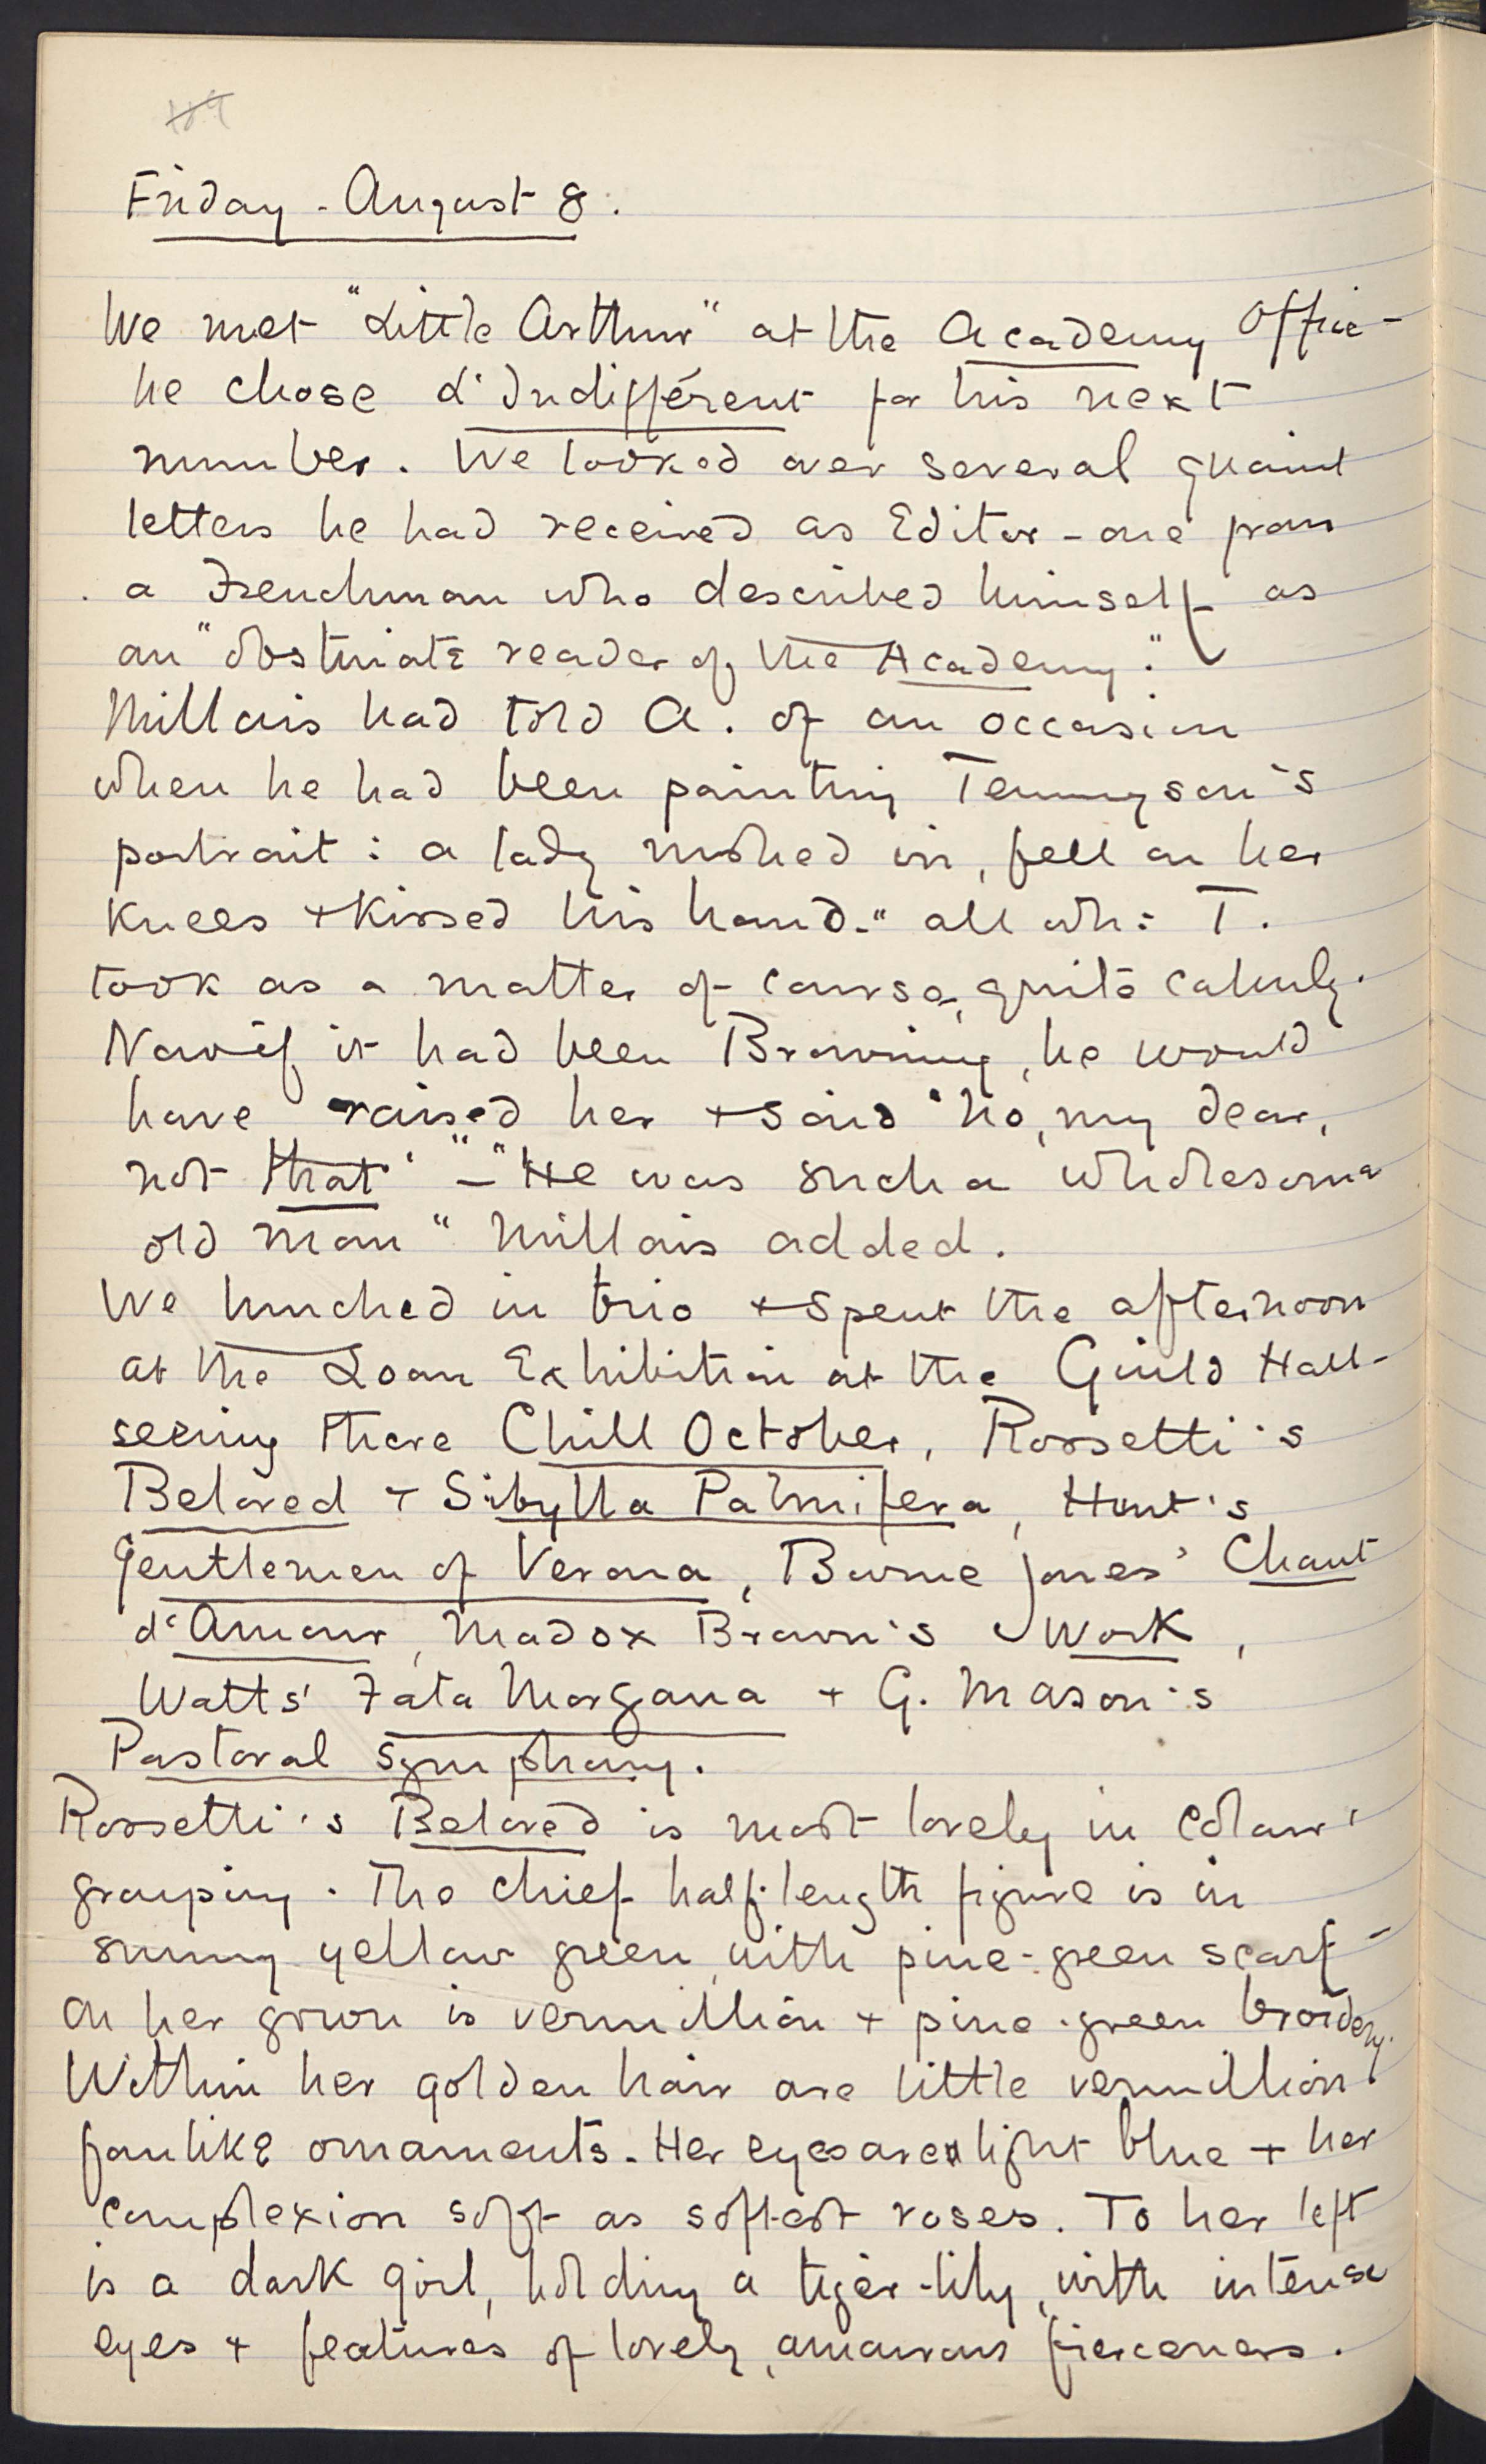 Friday - August 8.
We met "Little Arthur" at the Academy Office -
he chose L'Indifférent for his next
number. We looked over several quaint
letters he had received as Editor - one from
a Frenchman who described himself as
an "obstinate reader of the Academy."
Millais had told A. of an occasion
when he had been painting Tennyson's
portrait: a lady rushed in, fell on her
knees + kissed his hand - " all wh: T.
took as a matter of course, quite calmly.
Now if it had been Browning, he would
have raised her + said 'No, my dear,
not that' " - "He was such a wholesome
old man" Millais added.
We lunched in trio + spent the afternoon
at the Loan Exhibition at the Guild Hall -
seeing there Chill October, Rossetti's
Beloved + Sibylla Palmifera, Hunt's
Gentlemen of Verona, Burne Jones' Chant
d'Amour, Madox Brown's Work,
Watts' Fata Morgana + G. Mason's
Pastoral Symphony.
Rossetti's Beloved is most lovely in colour
grouping. The chief half-length figure is in
sunny yellow green, with pine-green scarf -
on her gown is vermillion + pine-green broidery.
Within her golden hair are little vermillion
fanlike ornaments. Her eyes are light blue + her
complexion soft as softest roses. To her left
is a dark girl, holding a tiger-lily, with intense
eyes + features of lovely, amorous fierceness.